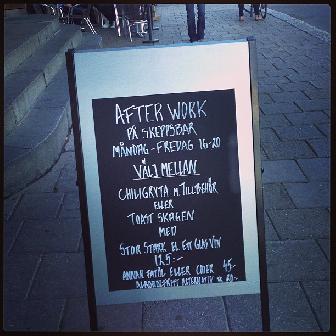 AFTER WORK
PÅ SKEPPSBAR
MÅNDAG-FREDAG 16-20
VÄLJ MELLAN
CHILIGRYTA M. TILLBEHÖR
ELLER
TOAST SKAGEN
MED
STOR STARK EL. ETT GLAS VIN
175:-
ANNAN FATÖL ELLER CIDER 45:-
ALKOHOLFRITT ALTERNATIV